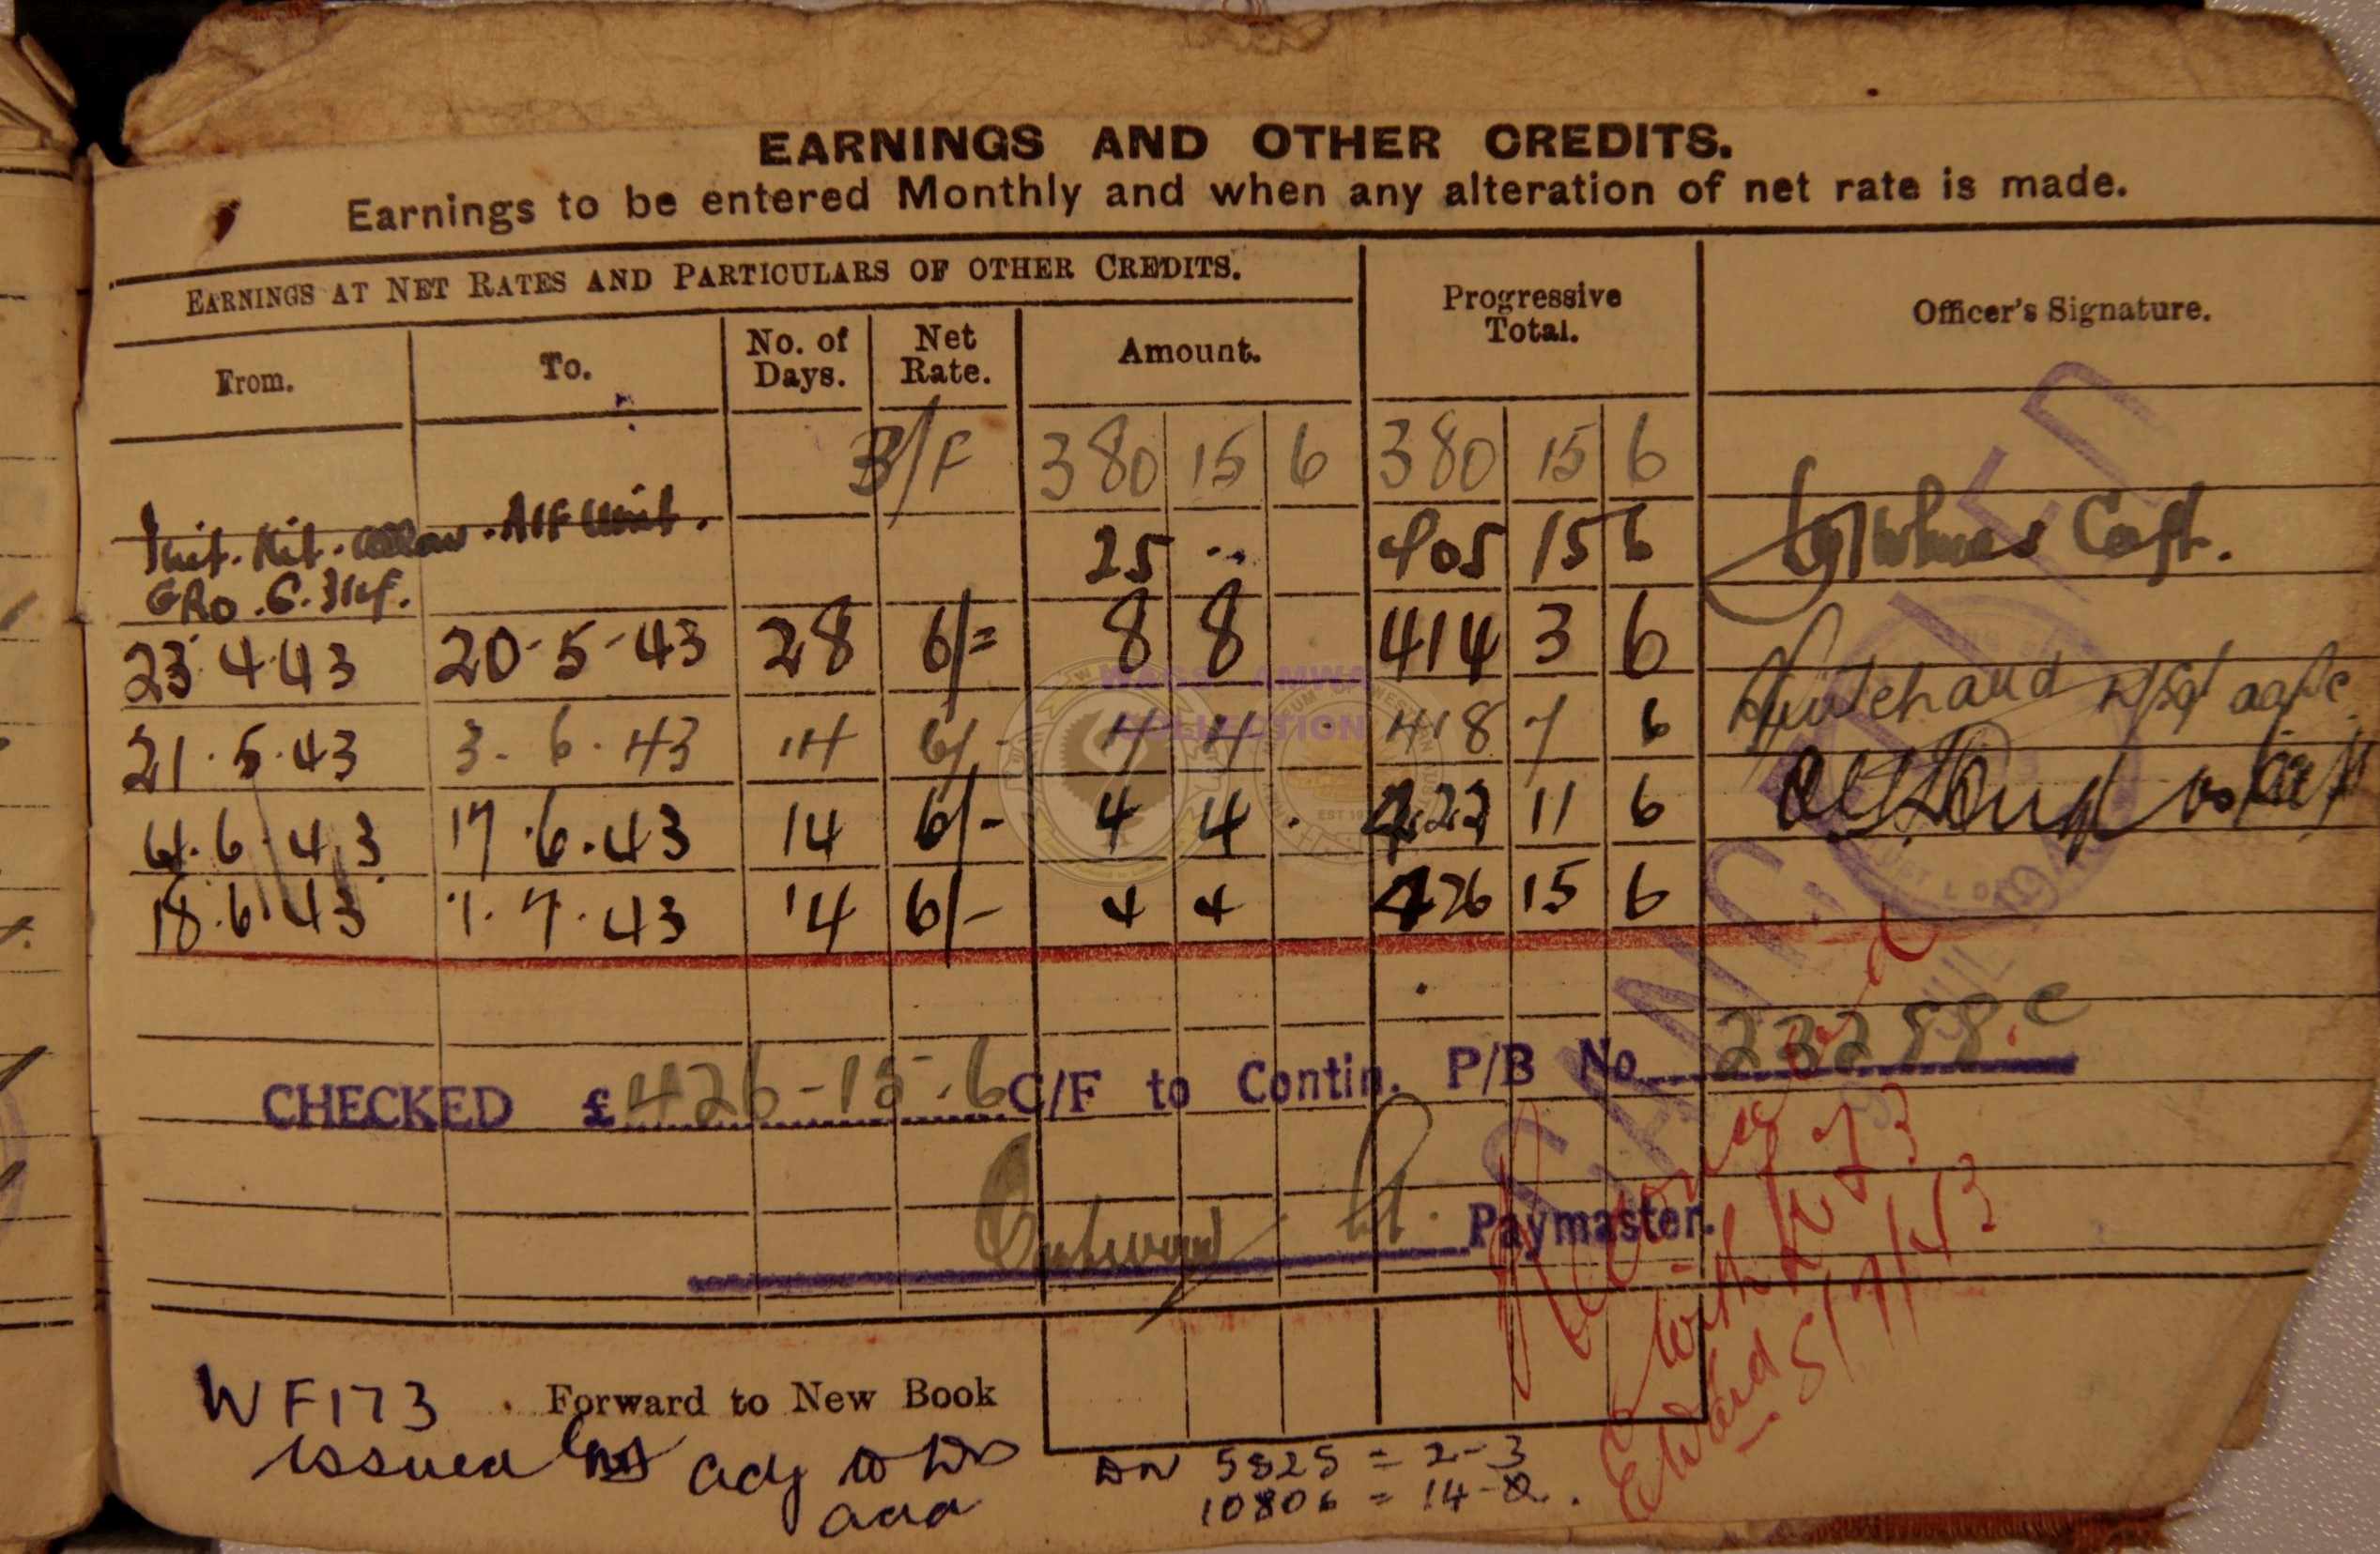 EARNINGS AND OTHER CREDITS.
Earnings to be entered Monthly and when any alteration of net rate is made.
EARNINGS AT NET RATES AND PARTICULARS OF OTHER CREDITS.
Progressive Total.
Officer's Signature.
From. To. No. of Days. Net Rate. Amount.
B/F 380 15 6 380 15 6
Init. Kit. Allow. AIF Unit. 25 .. 405 15 6 Capt.
GRO.
23.4.43 20-5-43 28 6/= 8 8 414 3 6
21.5.43 3.6.43 14 6/- 4 4 . 418 7 6
4.6.43 17.6.43 14 6/- 4 4 . 422 11 6
18.6.43 1.7.43 14 6/- 4 4 426 15 6
WAGS AMWA
COLLECTION
CHECKED £ 426-15-6 C/F to Contin. P/B No. 23288.C
Paymaster.
5/7/43
WF173 Forward to New Book
issued adj to
5825 = 2-3
10806 = 14-2.
CANCELLED